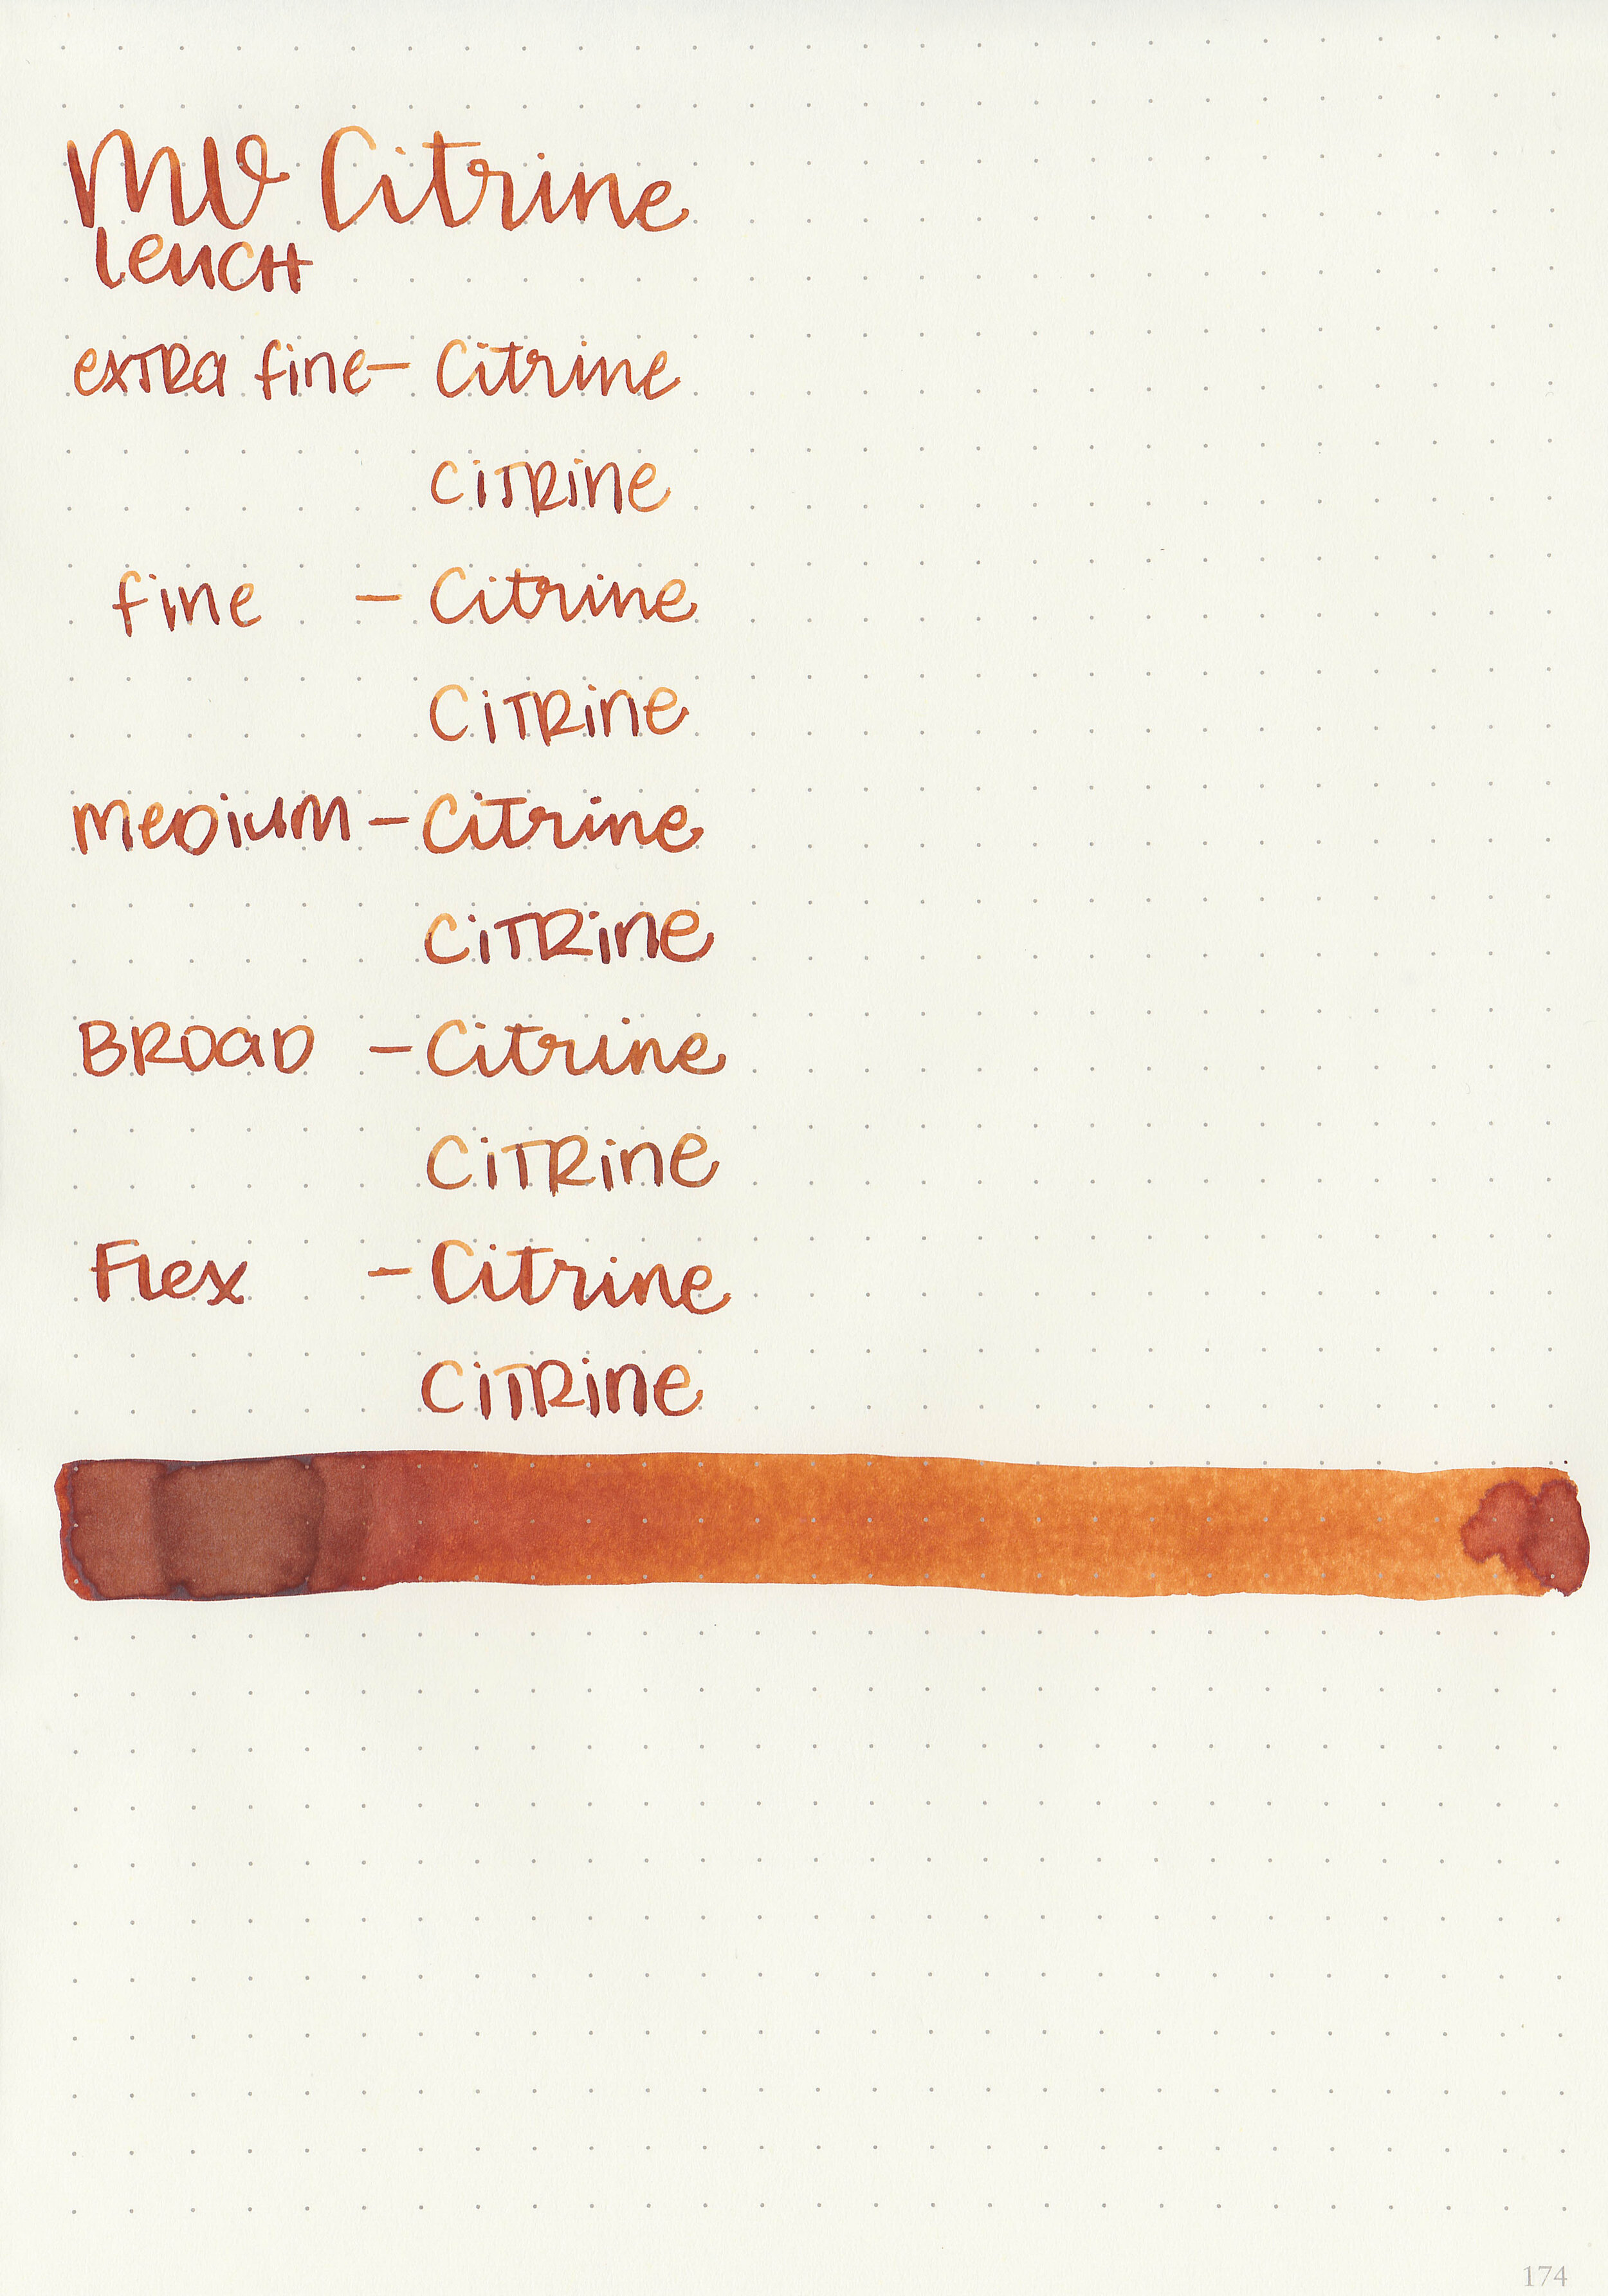 MV Citrine
Leuch
extra fine - Citrine
Citrine
fine - Citrine
Citrine
Medium - Citrine
Citrine
Broad - Citrine
Citrine
Flex - Citrine
Citrine
174